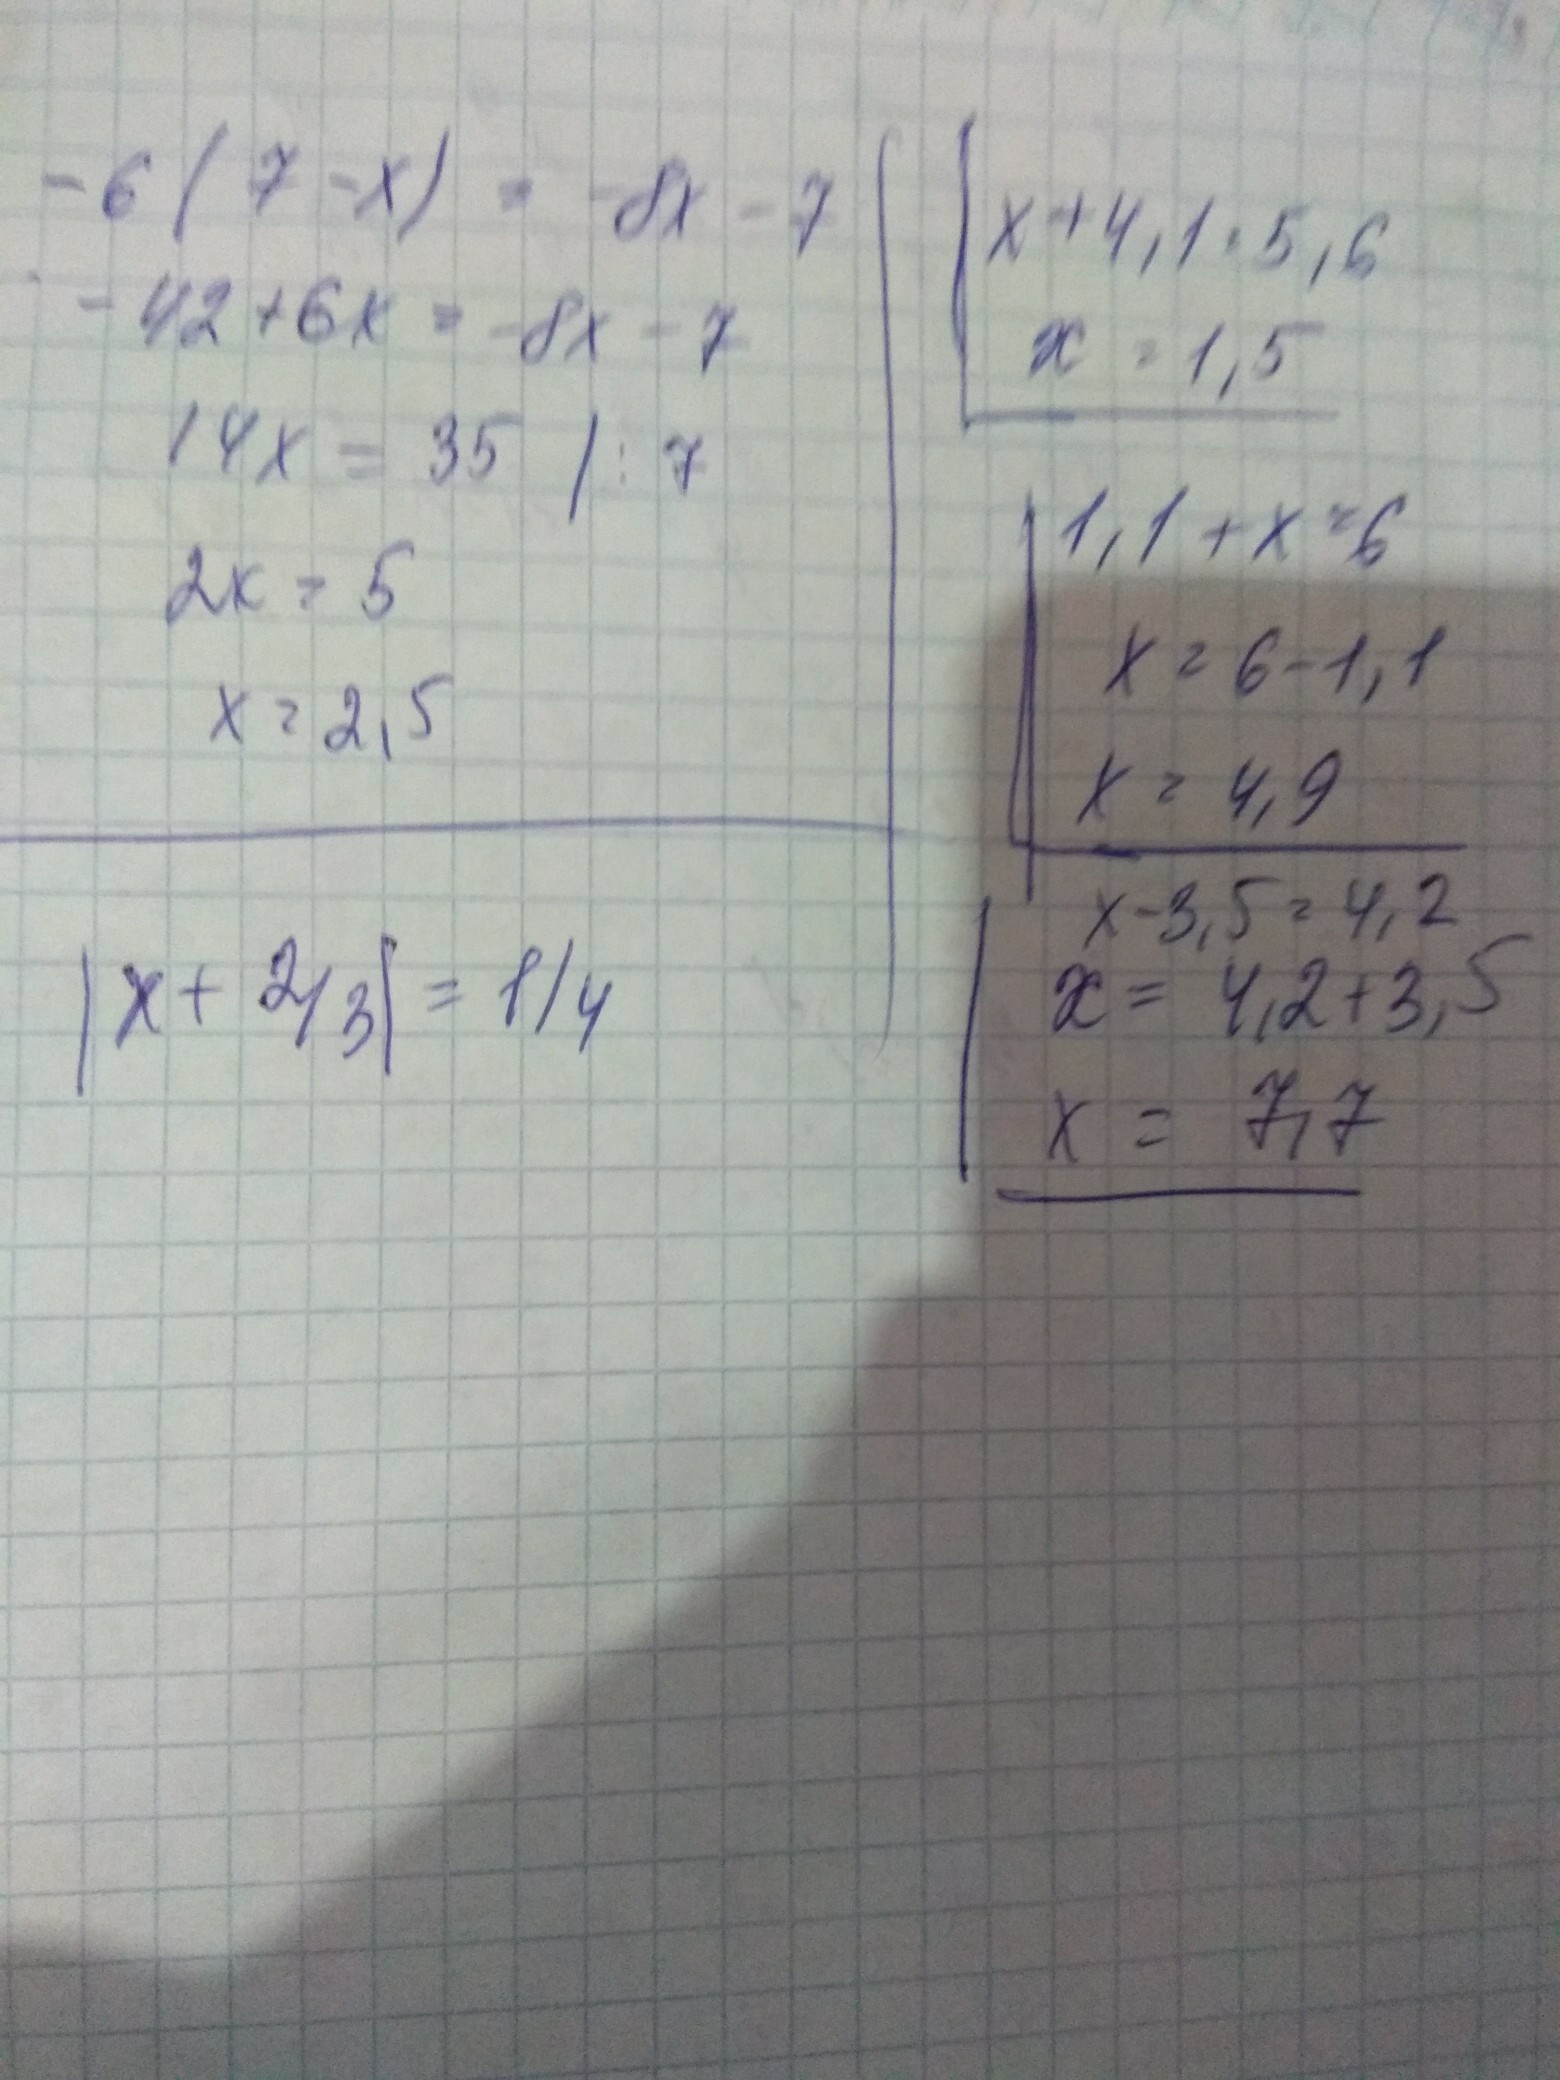 -6(7-x) = -8x-7
-42+6x = -8x-7
14x = 35 |:7
2x = 5
x = 2,5
|x+2/3| = 1/4
x+4,1=5,6
x = 1,5
1,1+x=6
x = 6-1,1
x = 4,9
x-3,5=4,2
x = 4,2+3,5
x = 7,7